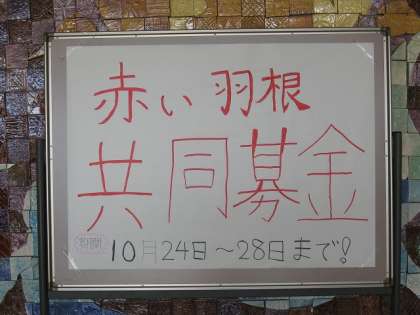 赤い羽根
共同募金
期間 10月24日～28日まで!